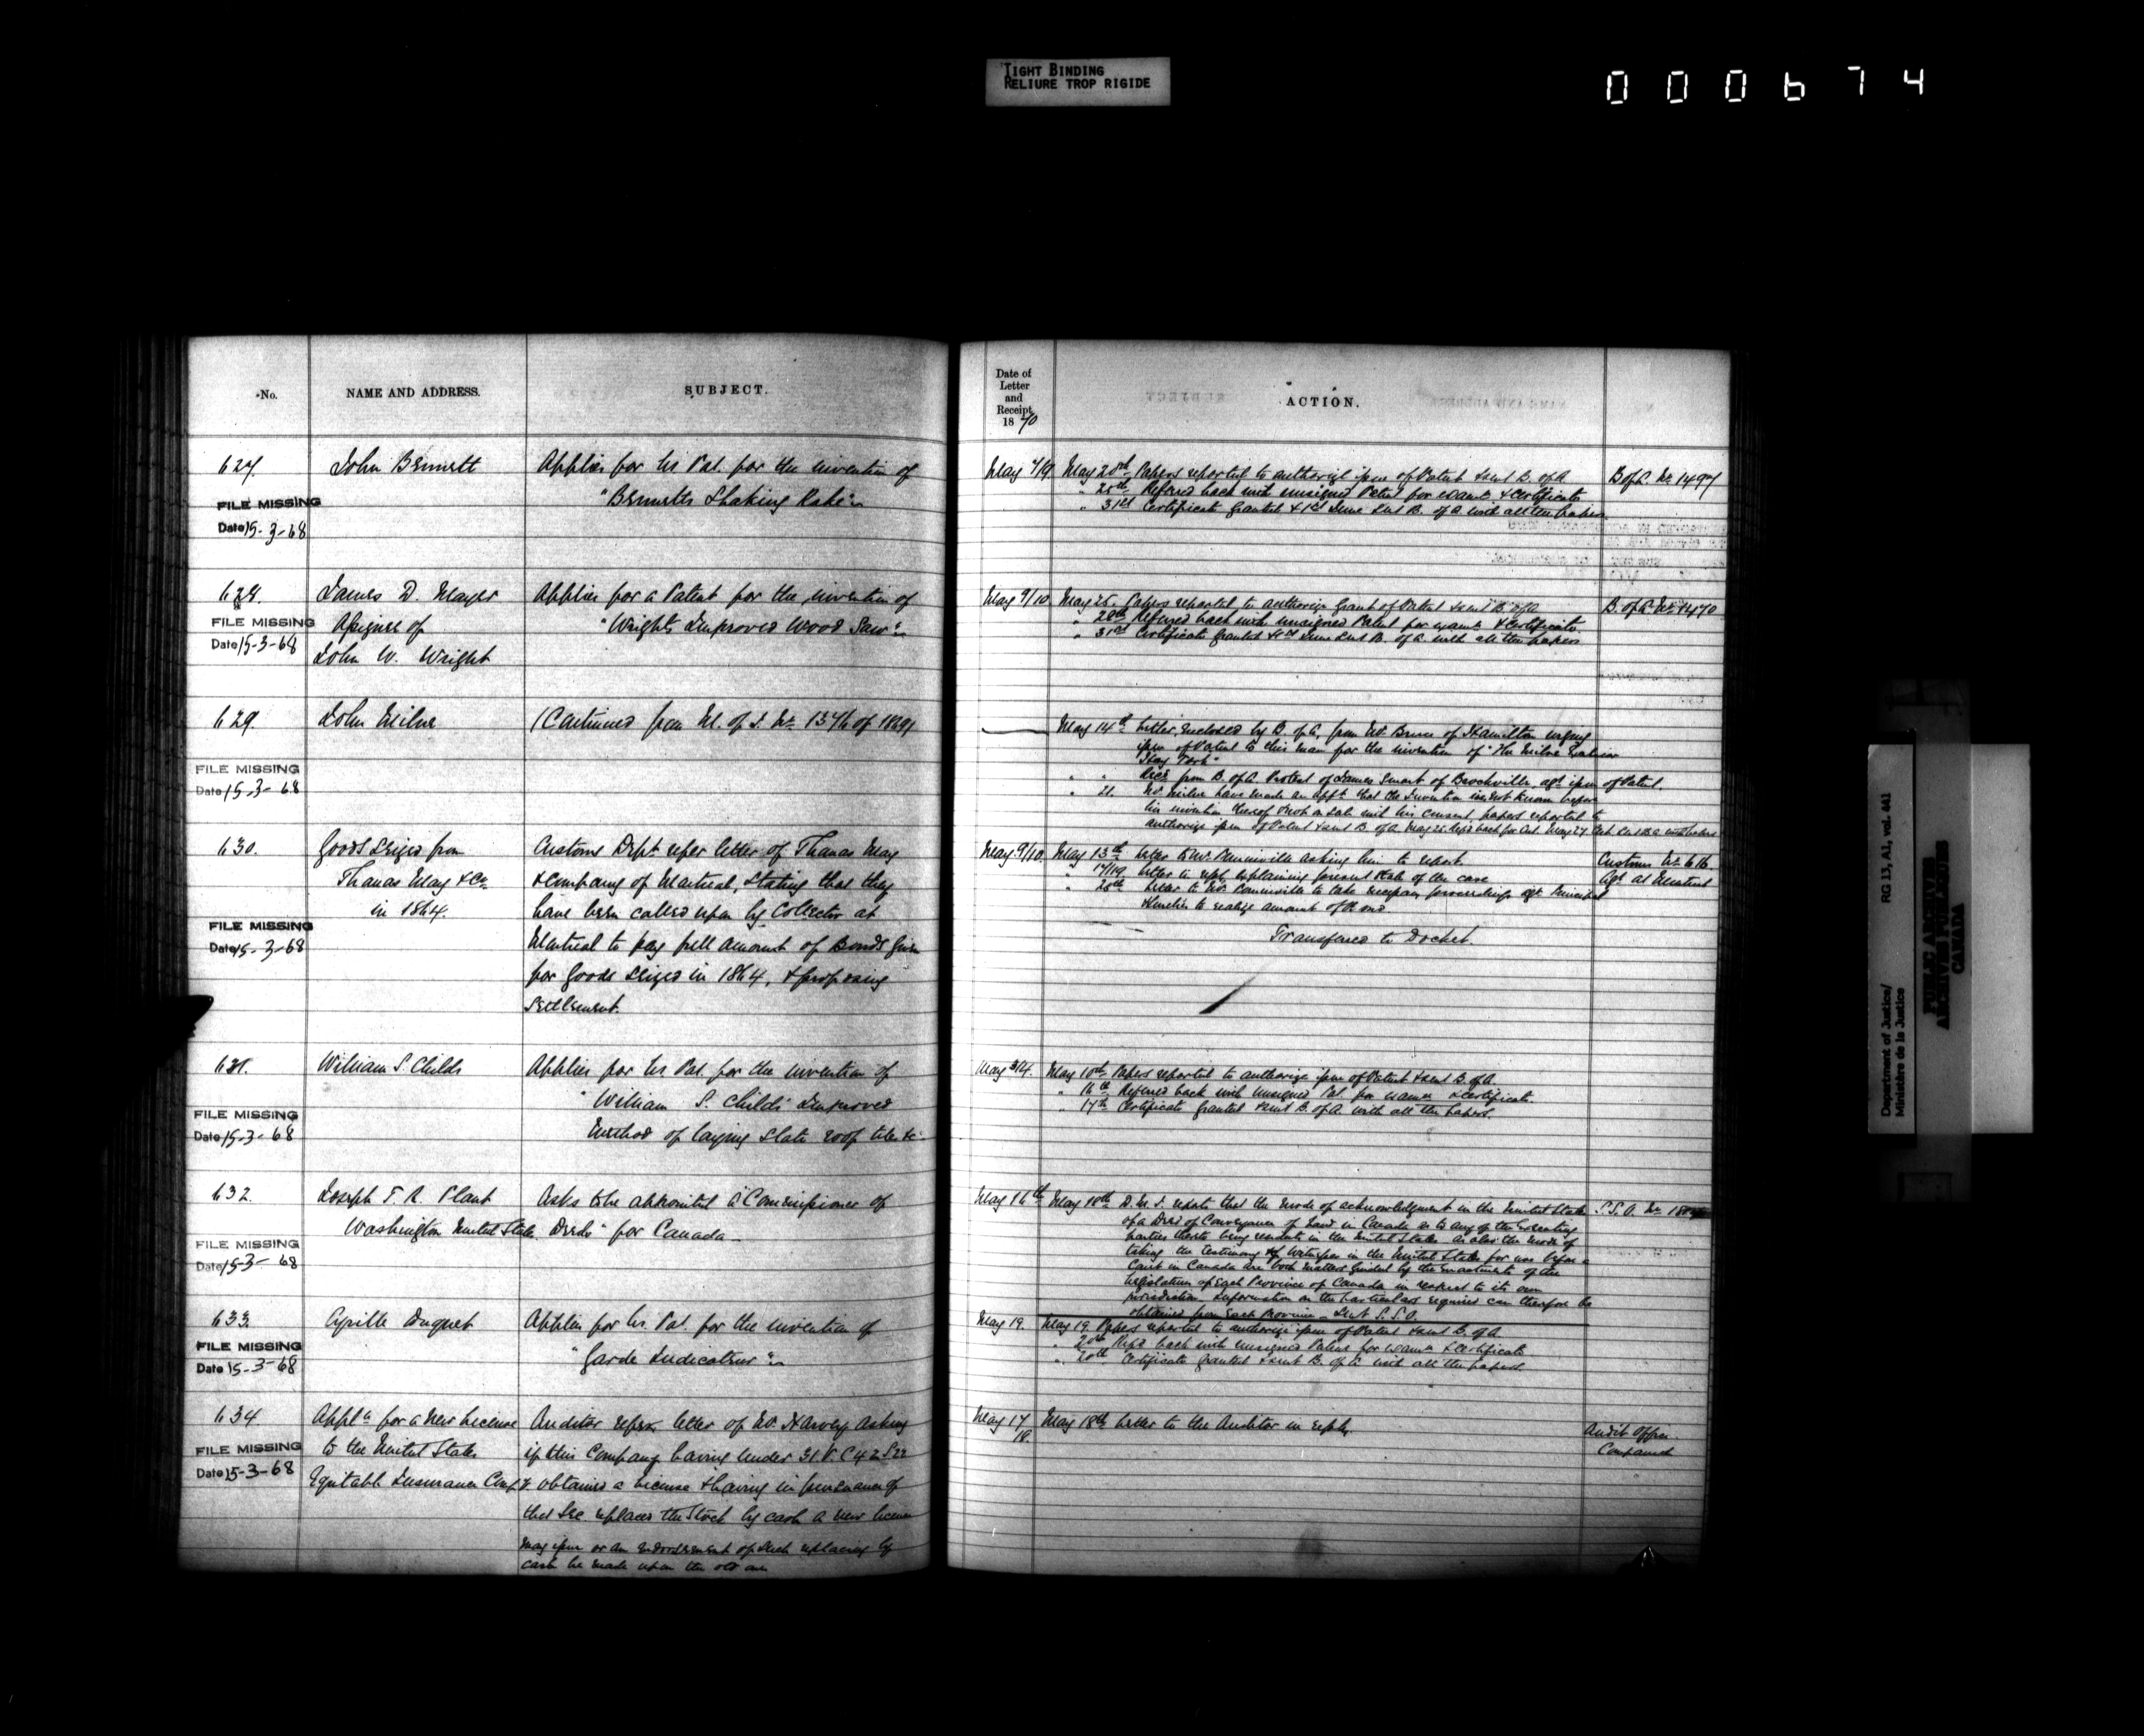 TIGHT BINDING
RELIURE TROP RIGIDE
000674
No.
NAME AND ADDRESS.
SUBJECT.
627.
John Bennett
Applies for Lrs Pat. for the invention of
"Bennetts Shaking Rake"
FILE MISSING
Date 15-3-68
628.
James D. Mayer
Assignee of
John W. Wright
Applies for a Patent for the invention of
"Wright's Improved Wood Saw"
FILE MISSING
Date 15-3-68
629.
John Milne
(Continued from M. of J. No. 1376 of 1869)
FILE MISSING
Date 15-3-68
630.
Goods Seized from
Thomas May & Co
in 1864.
Customs Dept refer letter of Thomas May
& Company of Montreal, stating that they
have been called upon by Collector at
Montreal to pay full amount of Bonds given
for Goods Seized in 1864, & proposing
Settlement.
FILE MISSING
Date 15-3-68
631.
William S. Childs
Applies for Lrs Pat. for the invention of
"William S. Childs Improved
Method of laying Slate roof tiles &c"
FILE MISSING
Date 15-3-68
632.
Joseph T. K. Plant
Washington United States
Asks to be appointed a "Commissioner of
Deeds" for Canada
FILE MISSING
Date 15-3-68
633.
Cyrille Duquet
Applies for Lrs. Pat. for the invention of
"Garde Indicateur"
FILE MISSING
Date 15-3-68
634
Appln for a New License
to the United States
Equitable Insurance Compy
Auditor refers letter of Mr. Harvey asking
if this Company having under 31 V. C 42 S 22
obtained a license & having in pursuance of
that Sec replaced the Stock by cash a new license
may issue or an endorsement of such replacing by
cash be made upon the old one
FILE MISSING
Date 15-3-68
Date of
Letter
and
Receipt.
1870
ACTION.
May 7/19
May 20th Papers reported to authorize issue of Patent & sent B. of A.
" 25th Referred back with unsigned Patent for exam & certificate
" 31st Certificate granted & 1st June sent B. of A. with all the papers
B of A. No 1497
May 9/10
May 25. Papers reported to authorize Grant of Patent & sent B. of A
" 28th Referred back with unsigned Patent for exam & certificate.
" 31st Certificate granted & 1st June sent B. of A. with all the papers
B. of A. No 1470
May 14th Letter, enclosed by B. of A, from Mr. Bruce of Hamilton urging
issue of Patent to this man for the invention of "The Milne
Hay Fork"
" " Recd from B. of A. Protest of James Smart of Brockville agt issue of Patent.
" 21. Mr Milne have made an afft that the Invention is not known before
his invention thereof & not on sale with his consent, papers reported to
authorize issue of Patent & sent B. of A. May 25 Refd back for Cert. May 27 Cert. sent B. A. with papers
May 9/10
May 13th Letter to Mr. asking him to report
" 17/19 Letter to rept. explaining present state of the case
" 20th Letter to Mr. to take necessary proceedings agt Principal
& Sureties to realize amount of Bond.
Transferred to Docket.
Customs No 616
Agt at Montreal
May 3/4.
May 10th Papers reported to authorize issue of Patent & sent B. of A.
" 16th Referred back with unsigned Pat. for exam & certificate.
" 17th Certificate granted & sent B. of A. with all the papers.
May 16th
May 18th D. M. J. reports that the mode of acknowledgment in the United States
of a Deed of Conveyance of Land in Canada as to any of the Executing
parties thereto being resident in the United States as also the mode of
taking the testimony of Witnesses in the United States for use before a
Court in Canada are both matters guided by the enactments of the
Legislature of Each Province of Canada in respect to its own
jurisdiction. Information on the particulars required can therefore be
obtained from Each Province. Sent S. S. O.
S. S. O. No
May 19.
May 19. Papers reported to authorize issue of Patent & sent B. of A.
" 20th Refd back with unsigned Patent for exam & certificate
" 20th Certificate granted & sent B. of A. with all the papers.
May 17
18.
May 18th Letter to the Auditor in reply
Audit Office.
Department of Justice/
Ministère de la Justice
RG 13, A1, vol. 441
PUBLIC ARCHIVES
ARCHIVES PUBLIQUES
CANADA